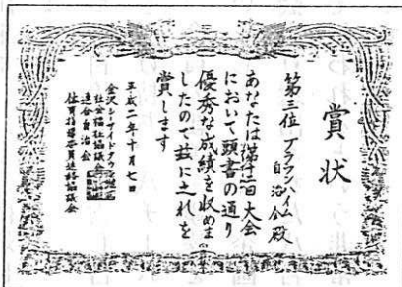 賞状
第三位 ブラウンハイム
自治会殿
あなたは第十三回大会
において頭書の通り
優秀な成績を収めま
したので茲に之れを
賞します
平成二年十月七日
金沢シーサイドタウン地区
社会福祉協議会
連合自治会
体育指導委員連絡協議会